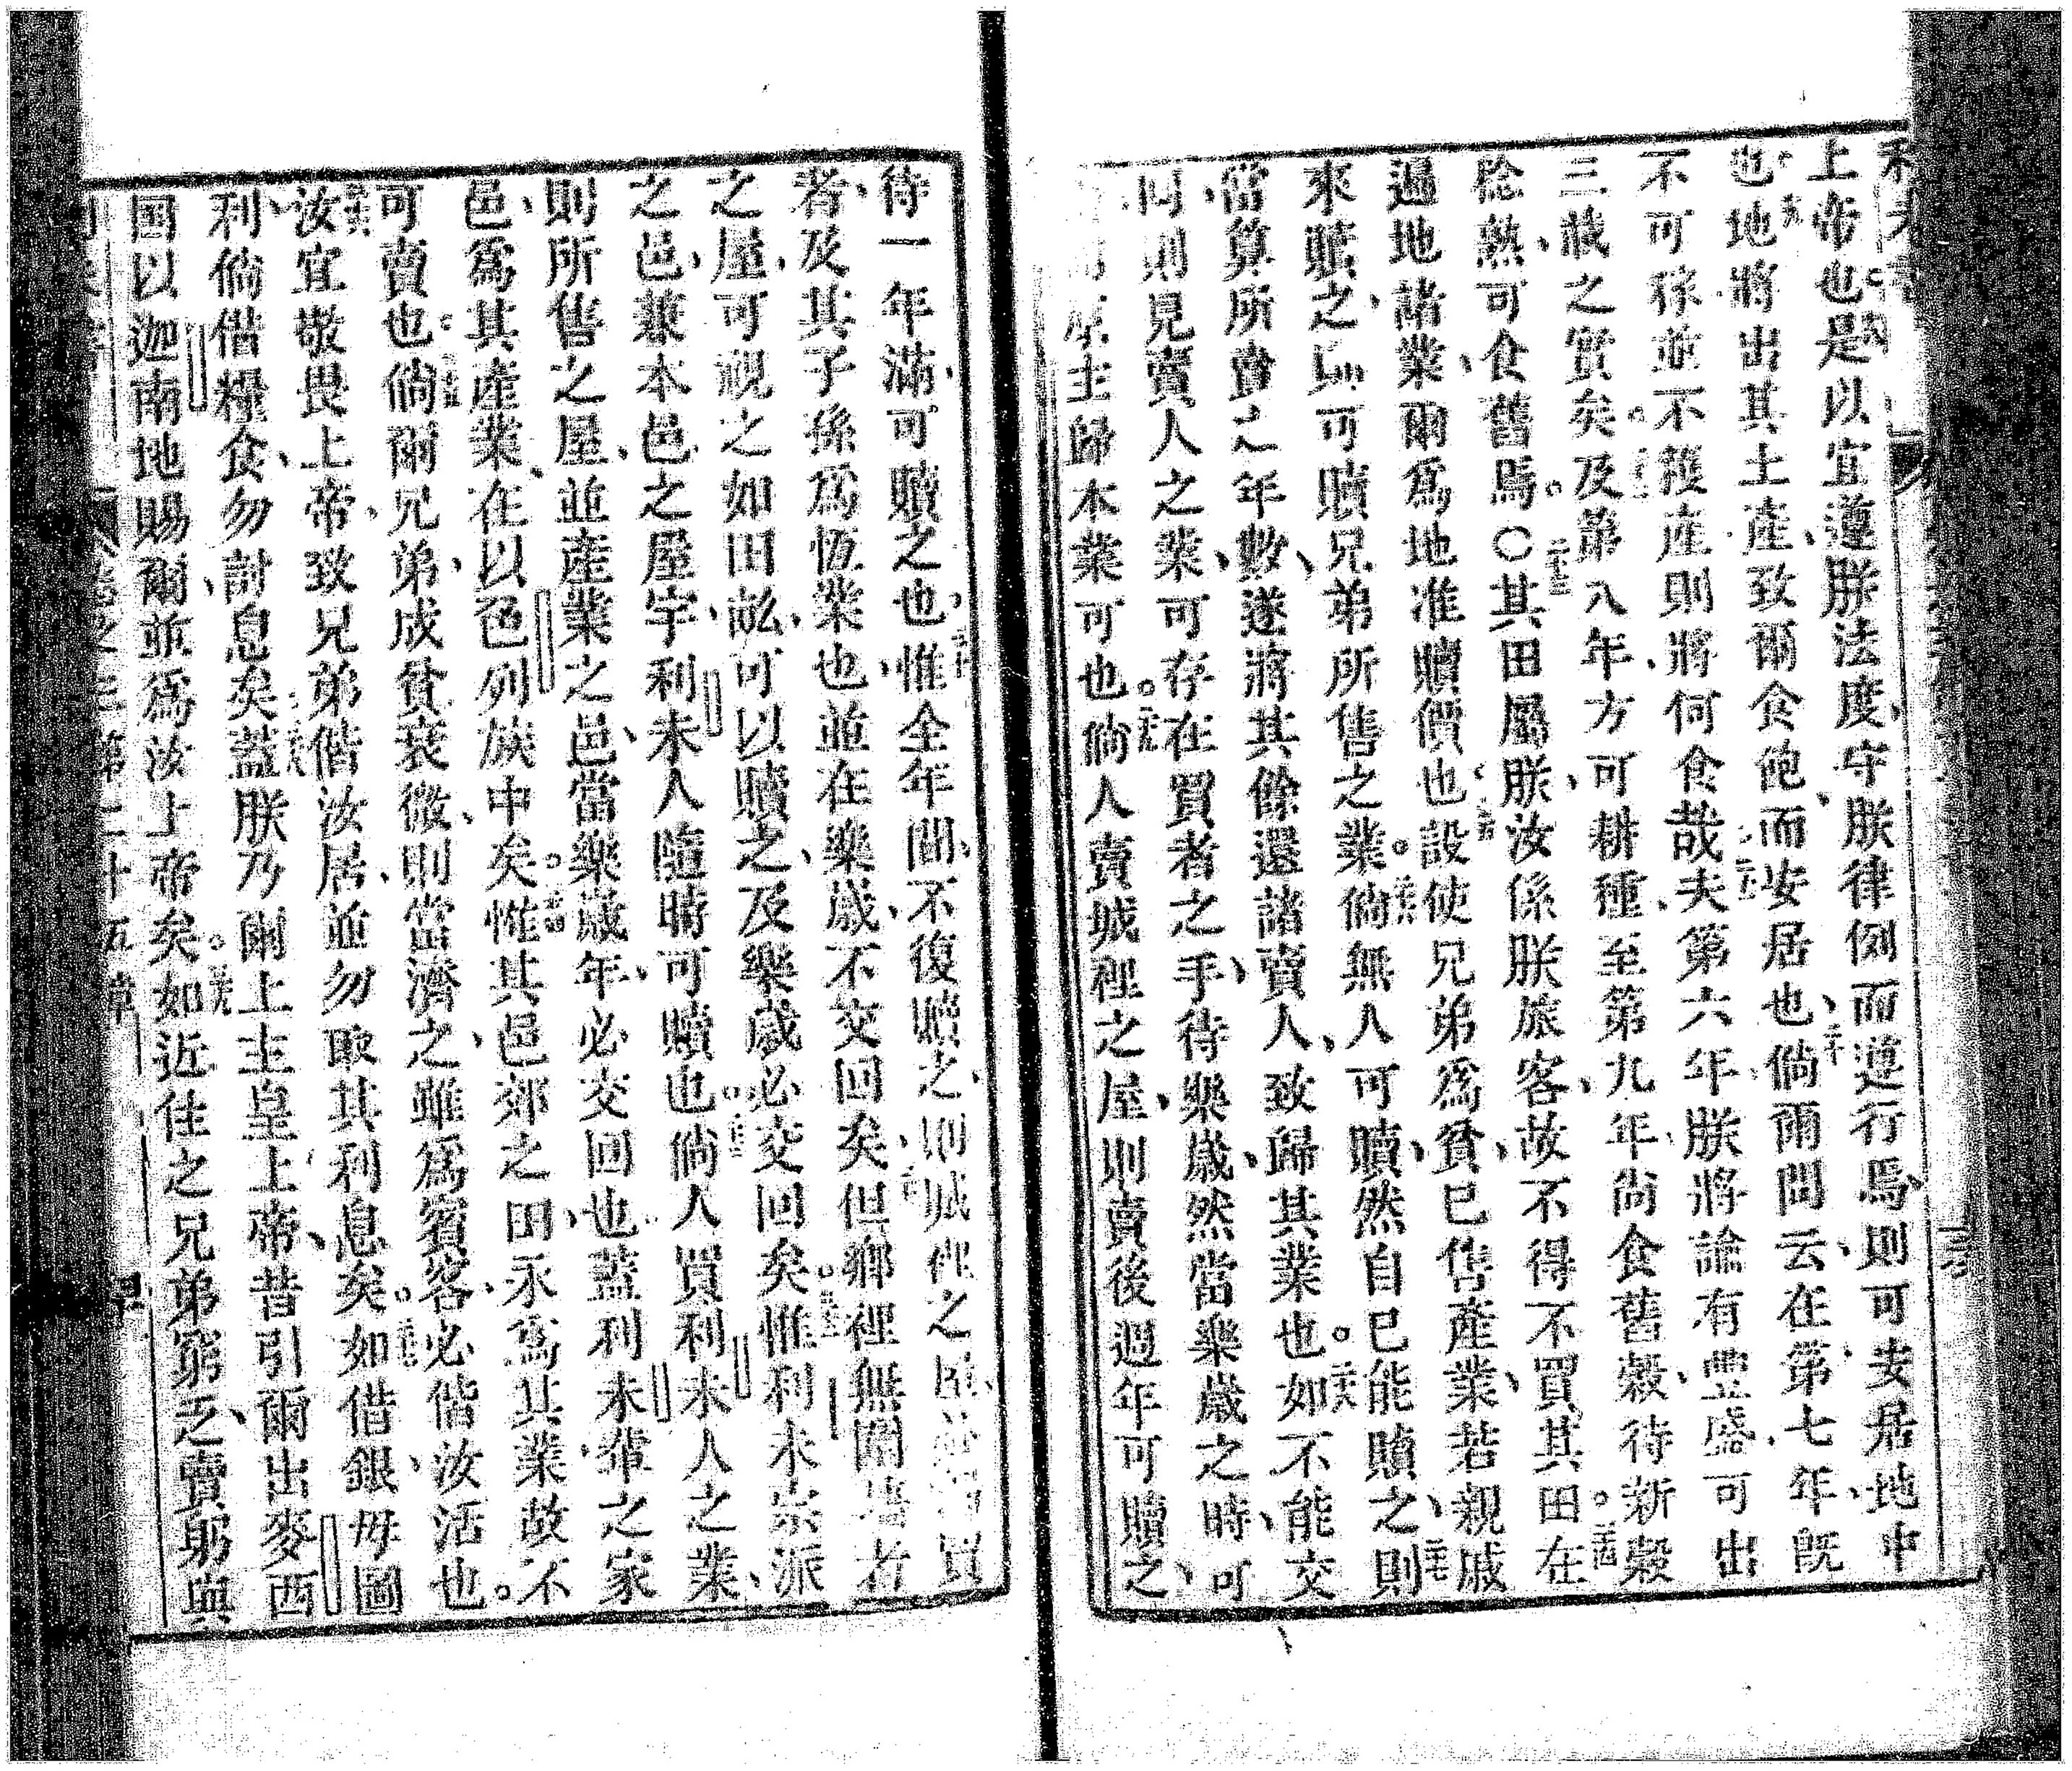 上帝也是以宜遵朕法度、守朕律例而遵行焉、則可安居地中
也、地將出其土產、致爾食飽而安居也、二十倘爾問云、在第七年、既
不可稼並不穫產、則將何食哉、二十一夫第六年、朕將諭有豐盛、可出
三載之實矣。二十二及第八年、方可耕種、至第九年、尙食舊穀、待新穀
稔熟、可食舊焉。〇二十三其田屬朕、汝係朕旅客、故不得不買其田。二十四在
遍地諸業、爾爲地准贖價也、二十五設使兄弟爲貧、已售產業、若親戚
來贖之、則可贖兄弟所售之業。二十六倘無人可贖、然自己能贖之、二十七則
當算所賣之年數、遂將其餘還諸賣人、致歸其業也。二十八如不能交
回、則見賣人之業、可存在買者之手、待樂歲、然當樂歲之時、可
主歸本業可也。二十九倘人賣城裡之屋、則賣後週年可贖之、
待一年滿、可贖之也、三十惟全年間、不復贖之、則城裡之屋、買
者、及其子孫爲恆業也、並在樂歲、不交回矣、三十一但鄉裡無圍墻者
之屋、可視之如田畝、可以贖之、及樂歲必交回矣。三十二惟利未宗派
之邑、兼本邑之屋宇、利未人隨時可贖也。三十三倘人買利未人之業、
則所售之屋、並產業之邑、當樂歲年、必交回也、蓋利未輩之家
邑、爲其產業、在以色列族中矣。三十四惟其邑郊之田、永爲其業、故不
可賣也。三十五倘爾兄弟、成貧衰微、則當濟之、雖爲賓客、必偕汝活也。
三十六汝宜敬畏上帝、致兄弟偕汝居、並勿取其利息矣。三十七如借銀、毋圖
利、倘借糧食、勿討息矣。三十八蓋朕乃爾上主皇上帝、昔引爾出麥西
国、以迦南地賜爾、並爲汝上帝矣。三十九如近住之兄弟窮乏、賣躬與